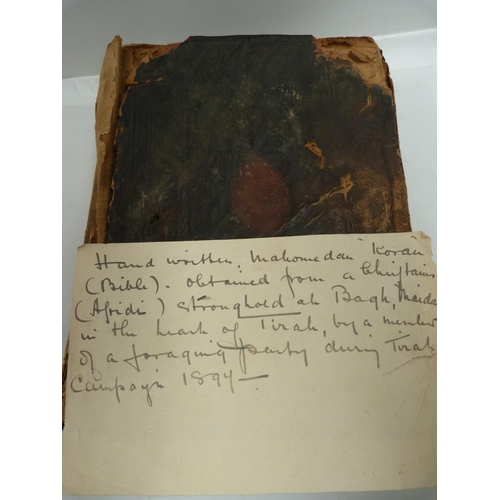 Hand written, Mahomedan "Koran
(Bible). obtained from a Chieftains
(Afridi) stronghold at Bagh, Maidan
in the heart of Tirah, by a member
of a foraging party during Tirah
Campaign 1897—